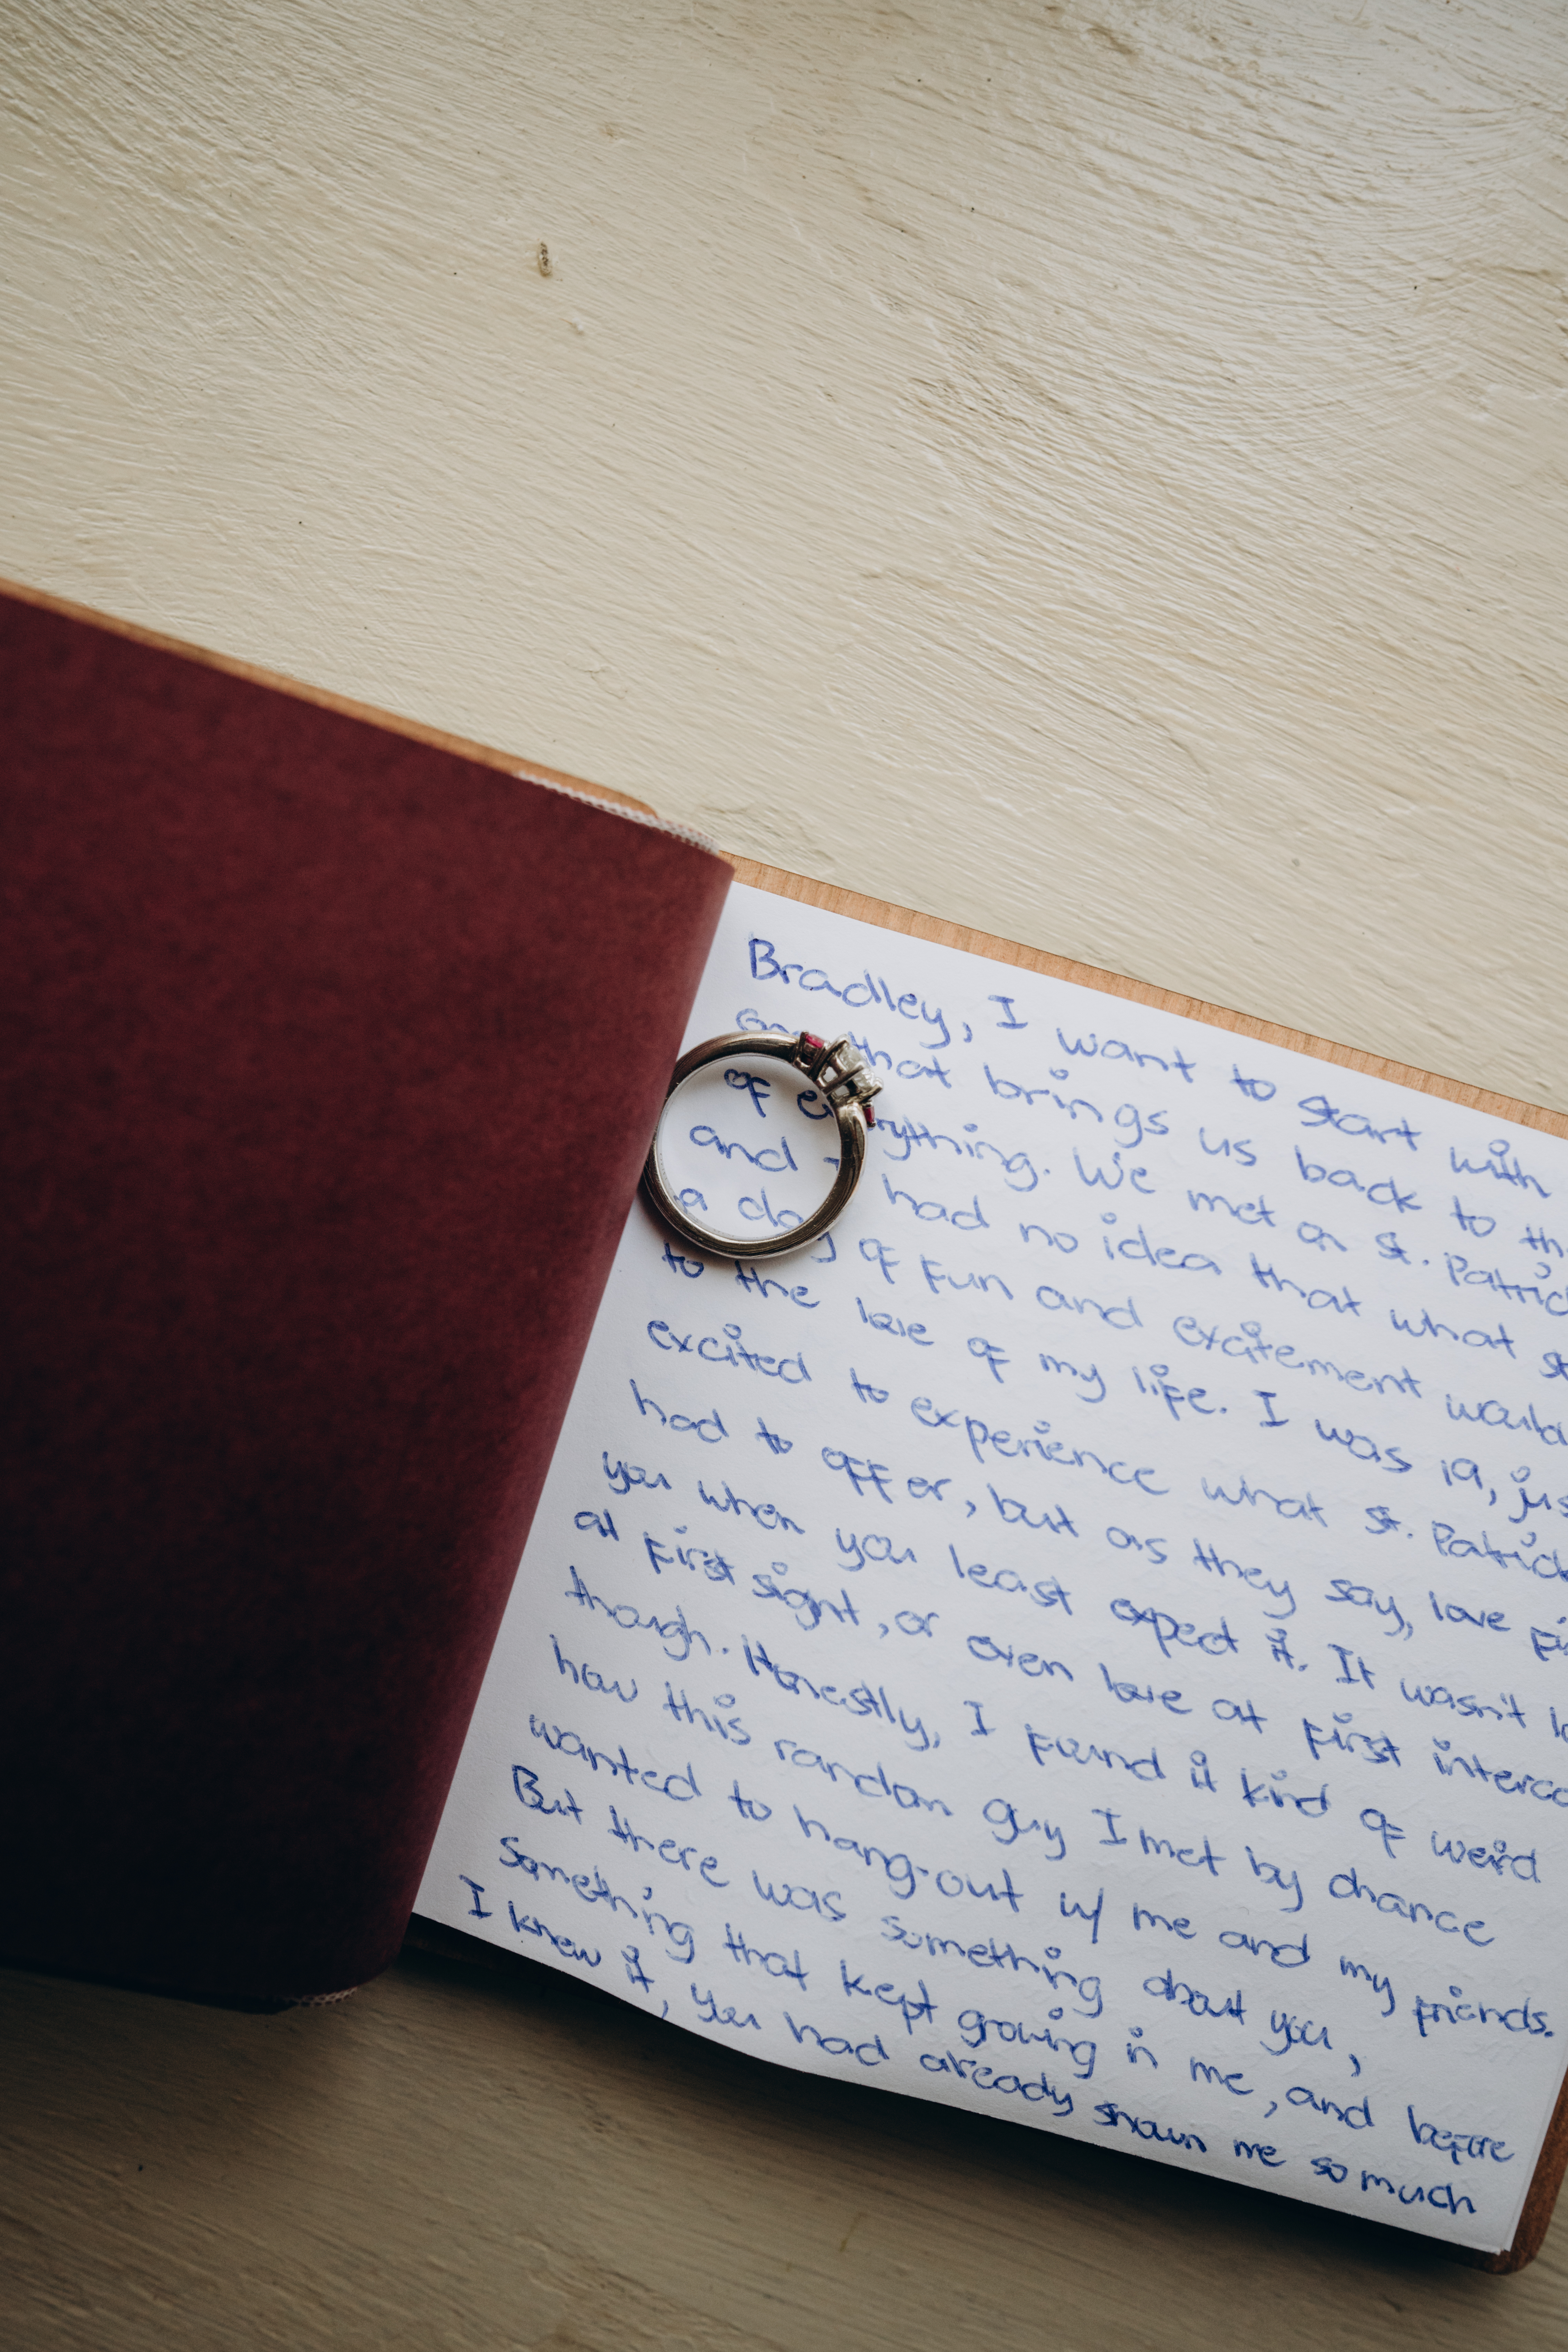 Bradley, I want to start with
that brings us back to th
of e rything. We met on St. Patric
and I had no idea that what st
a day of fun and excitement would
to the love of my life. I was 19, jus
excited to experience what St. Patrick
had to offer, but as they say, love fi
you when you least expect it. It wasn't lo
at first sight, or even love at first interac
though. Honestly, I found it kind of weird
how this random guy I met by chance
wanted to hang-out w/ me and my friends.
But there was something about you,
something that kept growing in me, and before
I knew it, you had already shown me so much